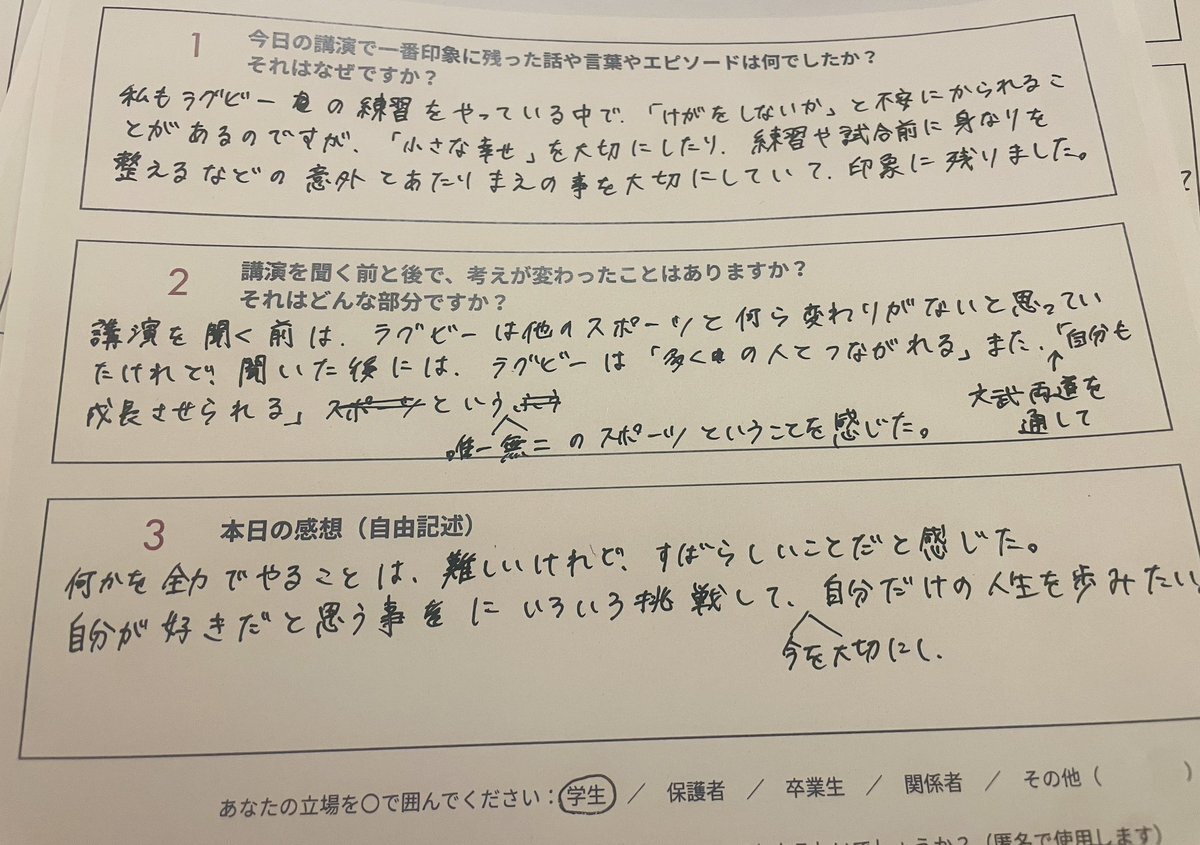 1 今日の講演で一番印象に残った話や言葉やエピソードは何でしたか？
それはなぜですか？
私もラグビーの練習をやっている中で、「けがをしないか」と不安にかられるこ
とがあるのですが、「小さな幸せ」を大切にしたり、練習や試合前に身なりを
整えるなどの意外とあたりまえの事を大切にしていて、印象に残りました。
2 講演を聞く前と後で、考えが変わったことはありますか？
それはどんな部分ですか？
講演を聞く前は、ラグビーは他のスポーツと何ら変わりがないと思ってい
たけれど、聞いた後には、ラグビーは「多くの人とつながれる」また、「自分も
文武両道を
通して
成長させられる」スポーツという
唯一無二のスポーツということを感じた。
3 本日の感想（自由記述）
何かを全力でやることは、難しいけれど、すばらしいことだと感じた。
自分が好きだと思う事にいろいろ挑戦して、自分だけの人生を歩みたい
今を大切にし、
あなたの立場を〇で囲んでください：学生 ／ 保護者 ／ 卒業生 ／ 関係者 ／ その他（ ）
でしょうか？（匿名で使用します）